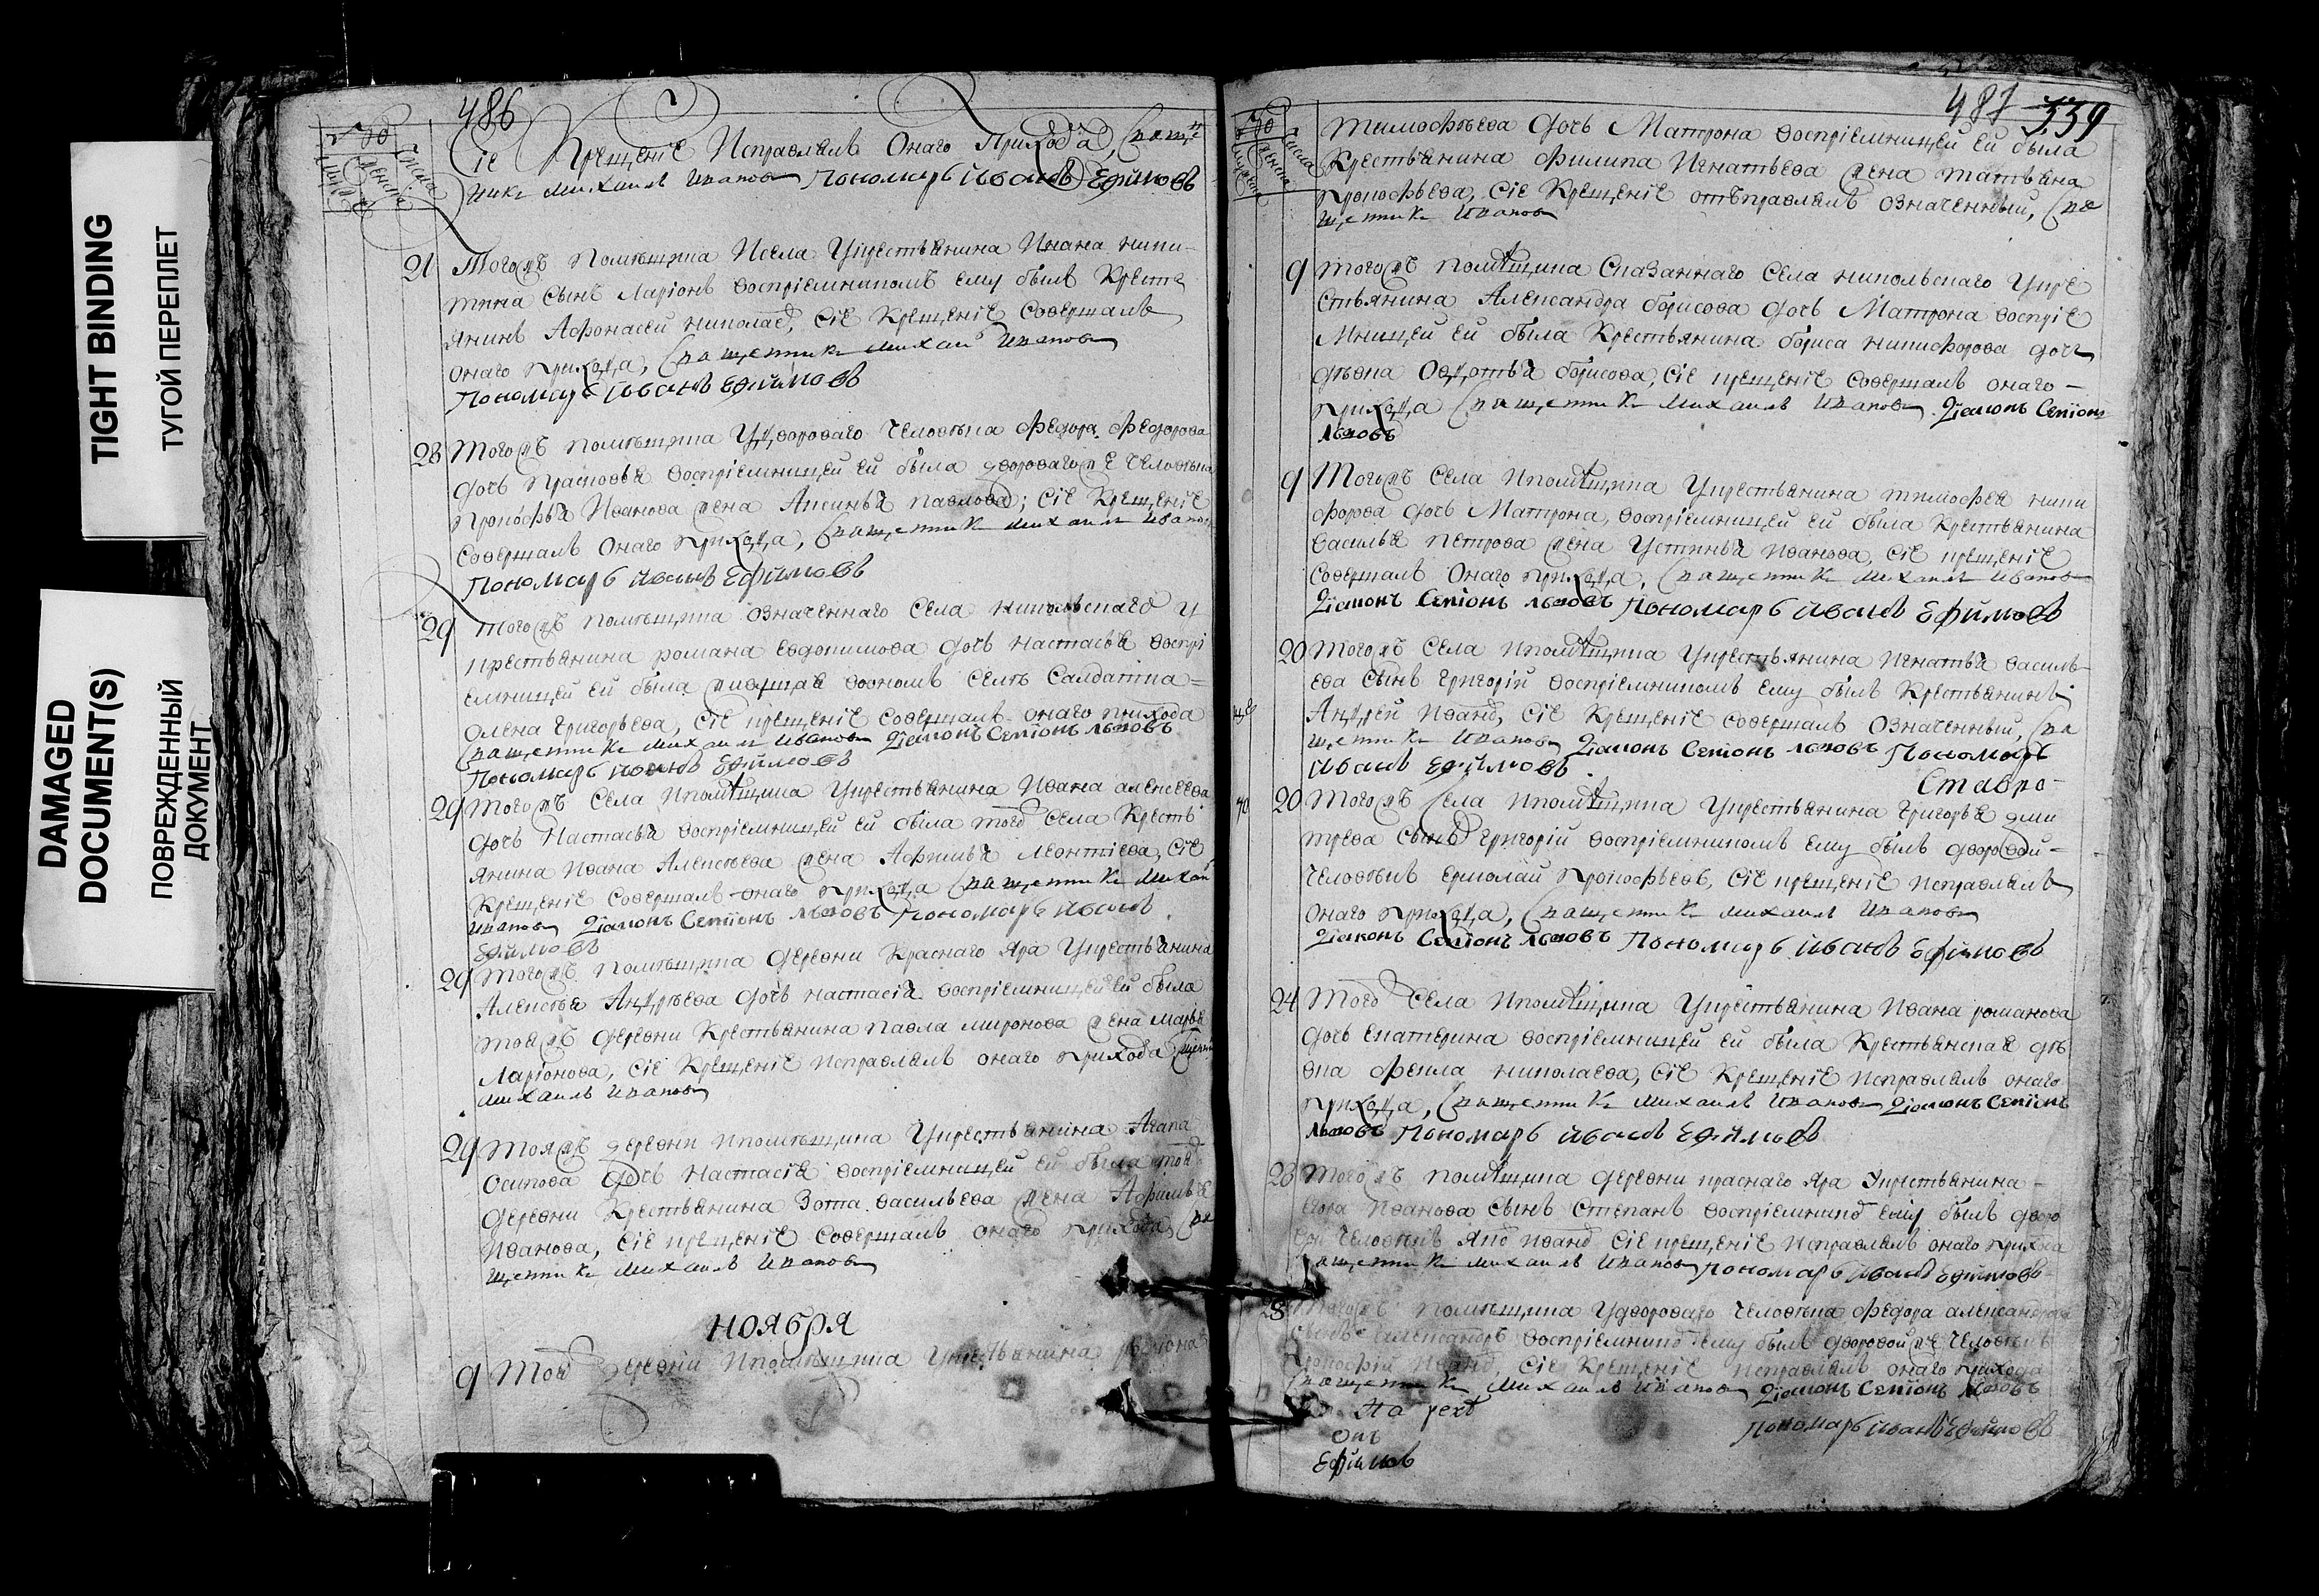 TIGHT BINDING
ТУГОЙ ПЕРЕПЛЕТ
DAMAGED
DOCUMENT(S)
ПОВРЕЖДЕННЫЙ
ДОКУМЕНТ
486
Сіе Крещеніе Исправлялъ Онаго Прихода, Свяще
нникъ Михаилъ Ивановъ Пономарь Иванъ Ефимовъ
21 Тогожъ Помѣщика Исела Укрестьянина Ивана Ники-
тина Сынъ Ларіонъ Воспріемникомъ Ему былъ Кресть
янинъ Афонасей Николаев, Сіе Крещеніе Совершалъ
Онаго Прихода, Священникъ Михаилъ Ивановъ
Пономарь Иванъ Ефимовъ
23 Тогожъ Помѣщика Удвороваго Человѣка Федора Федорова
Дочь Прасковья Воспріемницей Ей была двороваго же Человѣка
Прокофья Иванова жена Аксинья Павлова; Сіе Крещеніе
Совершалъ Онаго Прихода, Священникъ Михаилъ Ивановъ
Пономарь Иванъ Ефимовъ
29 Тогожъ Помѣщика Означеннаго Села Никольскаго У
крестьянина Романа Евдокимова Дочь Настасья Воспрі
емницей Ей была живущая Воономъ Селѣ Салдатка
Олена Григорьева, Сіе Крещеніе Совершалъ онаго прихода
Священникъ Михаилъ Ивановъ Діаконъ Семіонъ Львовъ
Пономарь Иванъ Ефимовъ
29 Тогожъ Села Ипомѣщика Укрестьянина Ивана Алексеева
Дочь Настасья Воспріемницей Ей была того Села Кресть
янина Ивана Алексѣева жена Афимья Леонтіева, Сіе
Крещеніе Совершалъ онаго Прихода Священникъ Михаи
Ивановъ Діаконъ Семіонъ Львовъ Пономарь Иванъ
Ефимовъ
29 Тогожъ Помѣщика Деревни Краснаго Яра Укрестьянина
Алексѣя Андрѣева Дочь Настасія Воспріемницей Ей была
тояжъ Деревни Крестьянина Павла Миронова жена Марья
Ларіонова, Сіе Крещеніе Исправлялъ онаго Прихода
Михаилъ Ивановъ
29 Тояжъ деревни Ипомѣщика Укрестьянина Агапа
Осипова Дочь Настасія Воспріемницей Ей была той
Деревни Крестьянина Зота Васильева жена Афимья
Иванова, Сіе Крещеніе Совершалъ онаго Прихода, Свя
щенникъ Михаилъ Ивановъ
НОЯБРЯ
9 Той деревни Ипомѣщика Укрестьянина
487 539
Тимофѣева Дочь Матрона Воспріемницей Ей была
Крестьянина Филипа Игнатьева жена Татьяна
Прокофьева, Сіе Крещеніе отъправлялъ Означенный, Свя
щенникъ Ивановъ
9 Тогожъ Помѣщика Сказаннаго Села Никольскаго Укре
стьянина Александра Борисова Дочь Матрона Воспріе
мницей Ей была Крестьянина Бориса Никифорова дочь
дѣвка Овдотья Борисова, Сіе Крещеніе Совершалъ онаго
Прихода Священникъ Михаилъ Ивановъ Діаконъ Семіонъ
Львовъ
9 Тогожъ Села Ипомѣщика Укрестьянина Тимофея Ники
форова Дочь Матрона, Воспріемницей Ей была Крестьянина
Василья Петрова жена Устинья Иванова, Сіе Крещеніе
Совершалъ Онаго Прихода, Священникъ Михаилъ Ивановъ
Діаконъ Семіонъ Львовъ Пономарь Иванъ Ефимовъ
20 Тогожъ Села Ипомѣщика Укрестьянина Игнатья Василь-
ева Сынъ Григорій Воспріемникомъ Ему былъ Крестьянинъ
Андрей Иванов, Сіе Крещеніе Совершалъ Означенный, Свя
щенникъ Ивановъ Діаконъ Семіонъ Львовъ Пономарь
Иванъ Ефимовъ
Ставро-
20 Тогожъ Села Ипомѣщика Укрестьянина Григорья Дми
трева Сынъ Григорій Воспріемникомъ Ему былъ Дворовой
Человѣкъ Ермолай Прокофьевъ, Сіе Крещеніе Исправлялъ
Онаго Прихода, Священникъ Михаилъ Ивановъ
Діаконъ Семіонъ Львовъ Пономарь Иванъ Ефимовъ
24 Того Села Ипомѣщика Укрестьянина Ивана Романова
Дочь Екатерина Воспріемницей Ей была Крестьянская дѣ
вка Фекла Николаева, Сіе Крещеніе Исправлялъ онаго
Прихода, Священникъ Михаилъ Ивановъ Діаконъ Семіонъ
Львовъ Пономарь Иванъ Ефимовъ
23 Тогожъ Помѣщика Деревни Краснаго Яра Укрестьянина
Егора Иванова Сынъ Степанъ Воспріемнико Ему былъ Дворо
вой Человѣкъ Яко Ивано Сіе Крещеніе Исправлялъ онаго Прихода
Священникъ Михаилъ Ивановъ Пономарь Иванъ Ефимовъ
Тогожъ Помѣщика Удвороваго Человѣка Федора Александрова
Сынъ Александръ Воспріемнико Ему былъ Дворовой же Человѣкъ
Прокофій Ивано, Сіе Крещеніе Исправлялъ онаго прихода
Священникъ Михаилъ Ивановъ Діаконъ Семіонъ Львовъ
Пономарь Иванъ Ефимовъ
Ефимовъ